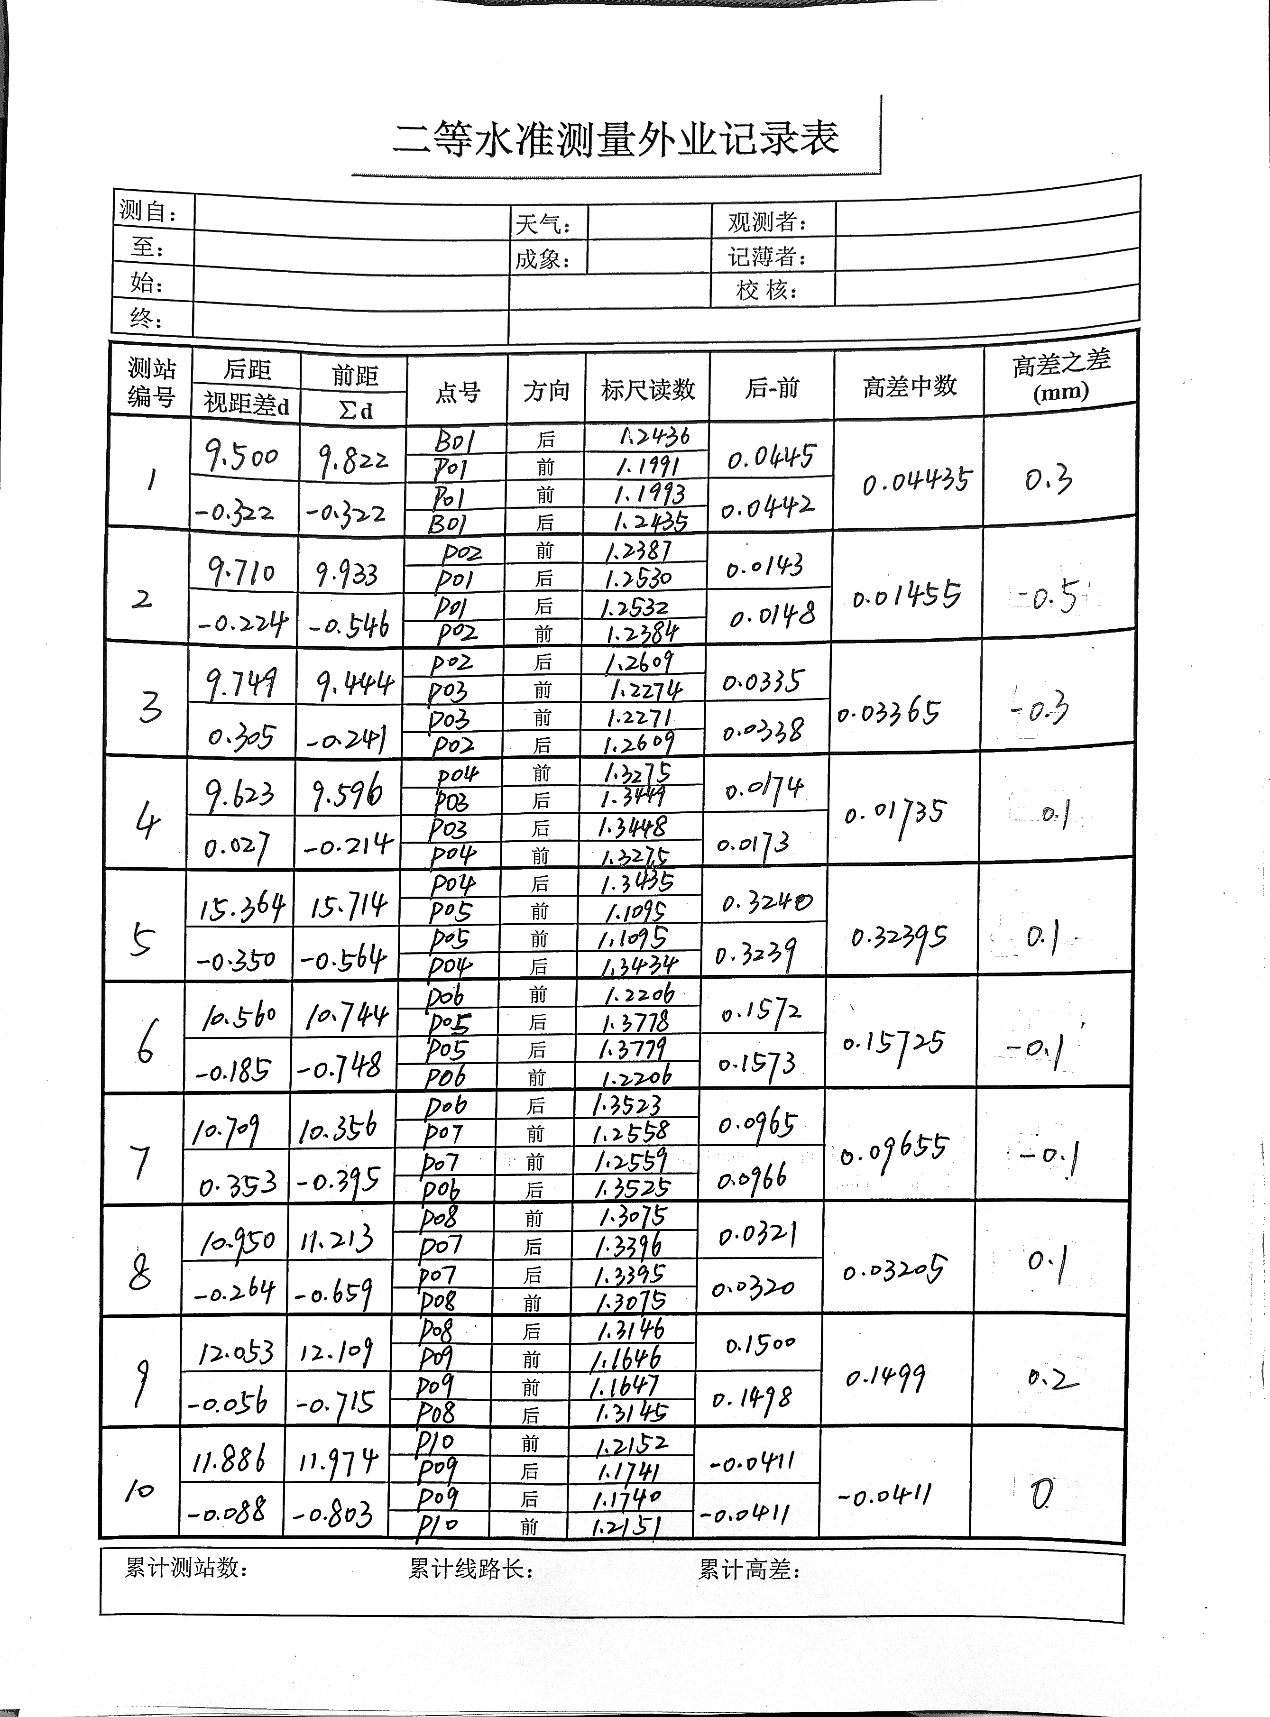 二等水准测量外业记录表
测自： 天气： 观测者：
至： 成象： 记薄者：
始： 校核：
终：
测站编号 后距 前距 点号 方向 标尺读数 后-前 高差中数 高差之差(mm)
视距差d Σd
1 9.500 9.822 B01 后 1.2436 0.0445 0.04435 0.3
P01 前 1.1991
-0.322 -0.322 P01 前 1.1993 0.0442
B01 后 1.2435
2 9.710 9.933 P02 前 1.2387 0.0143 0.01455 -0.5
P01 后 1.2530
-0.224 -0.546 P01 后 1.2532 0.0148
P02 前 1.2384
3 9.749 9.444 P02 后 1.2609 0.0335 0.03365 -0.3
P03 前 1.2274
0.305 -0.241 P03 前 1.2271 0.0338
P02 后 1.2609
4 9.623 9.596 P04 前 1.3275 0.0174 0.01735 0.1
P03 后 1.3449
0.027 -0.214 P03 后 1.3448 0.0173
P04 前 1.3275
5 15.364 15.714 P04 后 1.3435 0.3240 0.32395 0.1
P05 前 1.1095
-0.350 -0.564 P05 前 1.1095 0.3239
P04 后 1.3434
6 10.560 10.744 P06 前 1.2206 0.1572 0.15725 -0.1
P05 后 1.3778
-0.185 -0.748 P05 后 1.3779 0.1573
P06 前 1.2206
7 10.709 10.356 P06 后 1.3523 0.0965 0.09655 -0.1
P07 前 1.2558
0.353 -0.395 P07 前 1.2559 0.0966
P06 后 1.3525
8 10.950 11.213 P08 前 1.3075 0.0321 0.03205 0.1
P07 后 1.3396
-0.264 -0.659 P07 后 1.3395 0.0320
P08 前 1.3075
9 12.053 12.109 P08 后 1.3146 0.1500 0.1499 0.2
P09 前 1.1646
-0.056 -0.715 P09 前 1.1647 0.1498
P08 后 1.3145
10 11.886 11.974 P10 前 1.2152 -0.0411 -0.0411 0
P09 后 1.1741
-0.088 -0.803 P09 后 1.1740 -0.0411
P10 前 1.2151
累计测站数： 累计线路长： 累计高差：